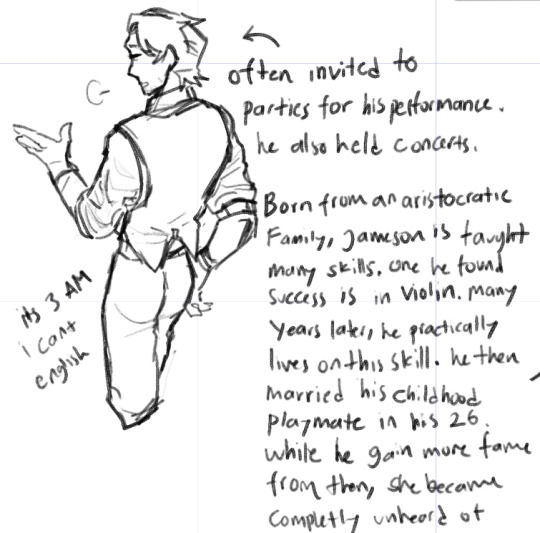 often invited to
parties for his performance.
he also held concerts.
Born from an aristocratic
Family, Jameson is taught
many skills. one he found
success is in violin. many
years later, he practically
lives on this skill. he then
married his childhood
playmate in his 26.
while he gain more fame
from then, she became
completly unheard of
its 3 AM
i cant
english